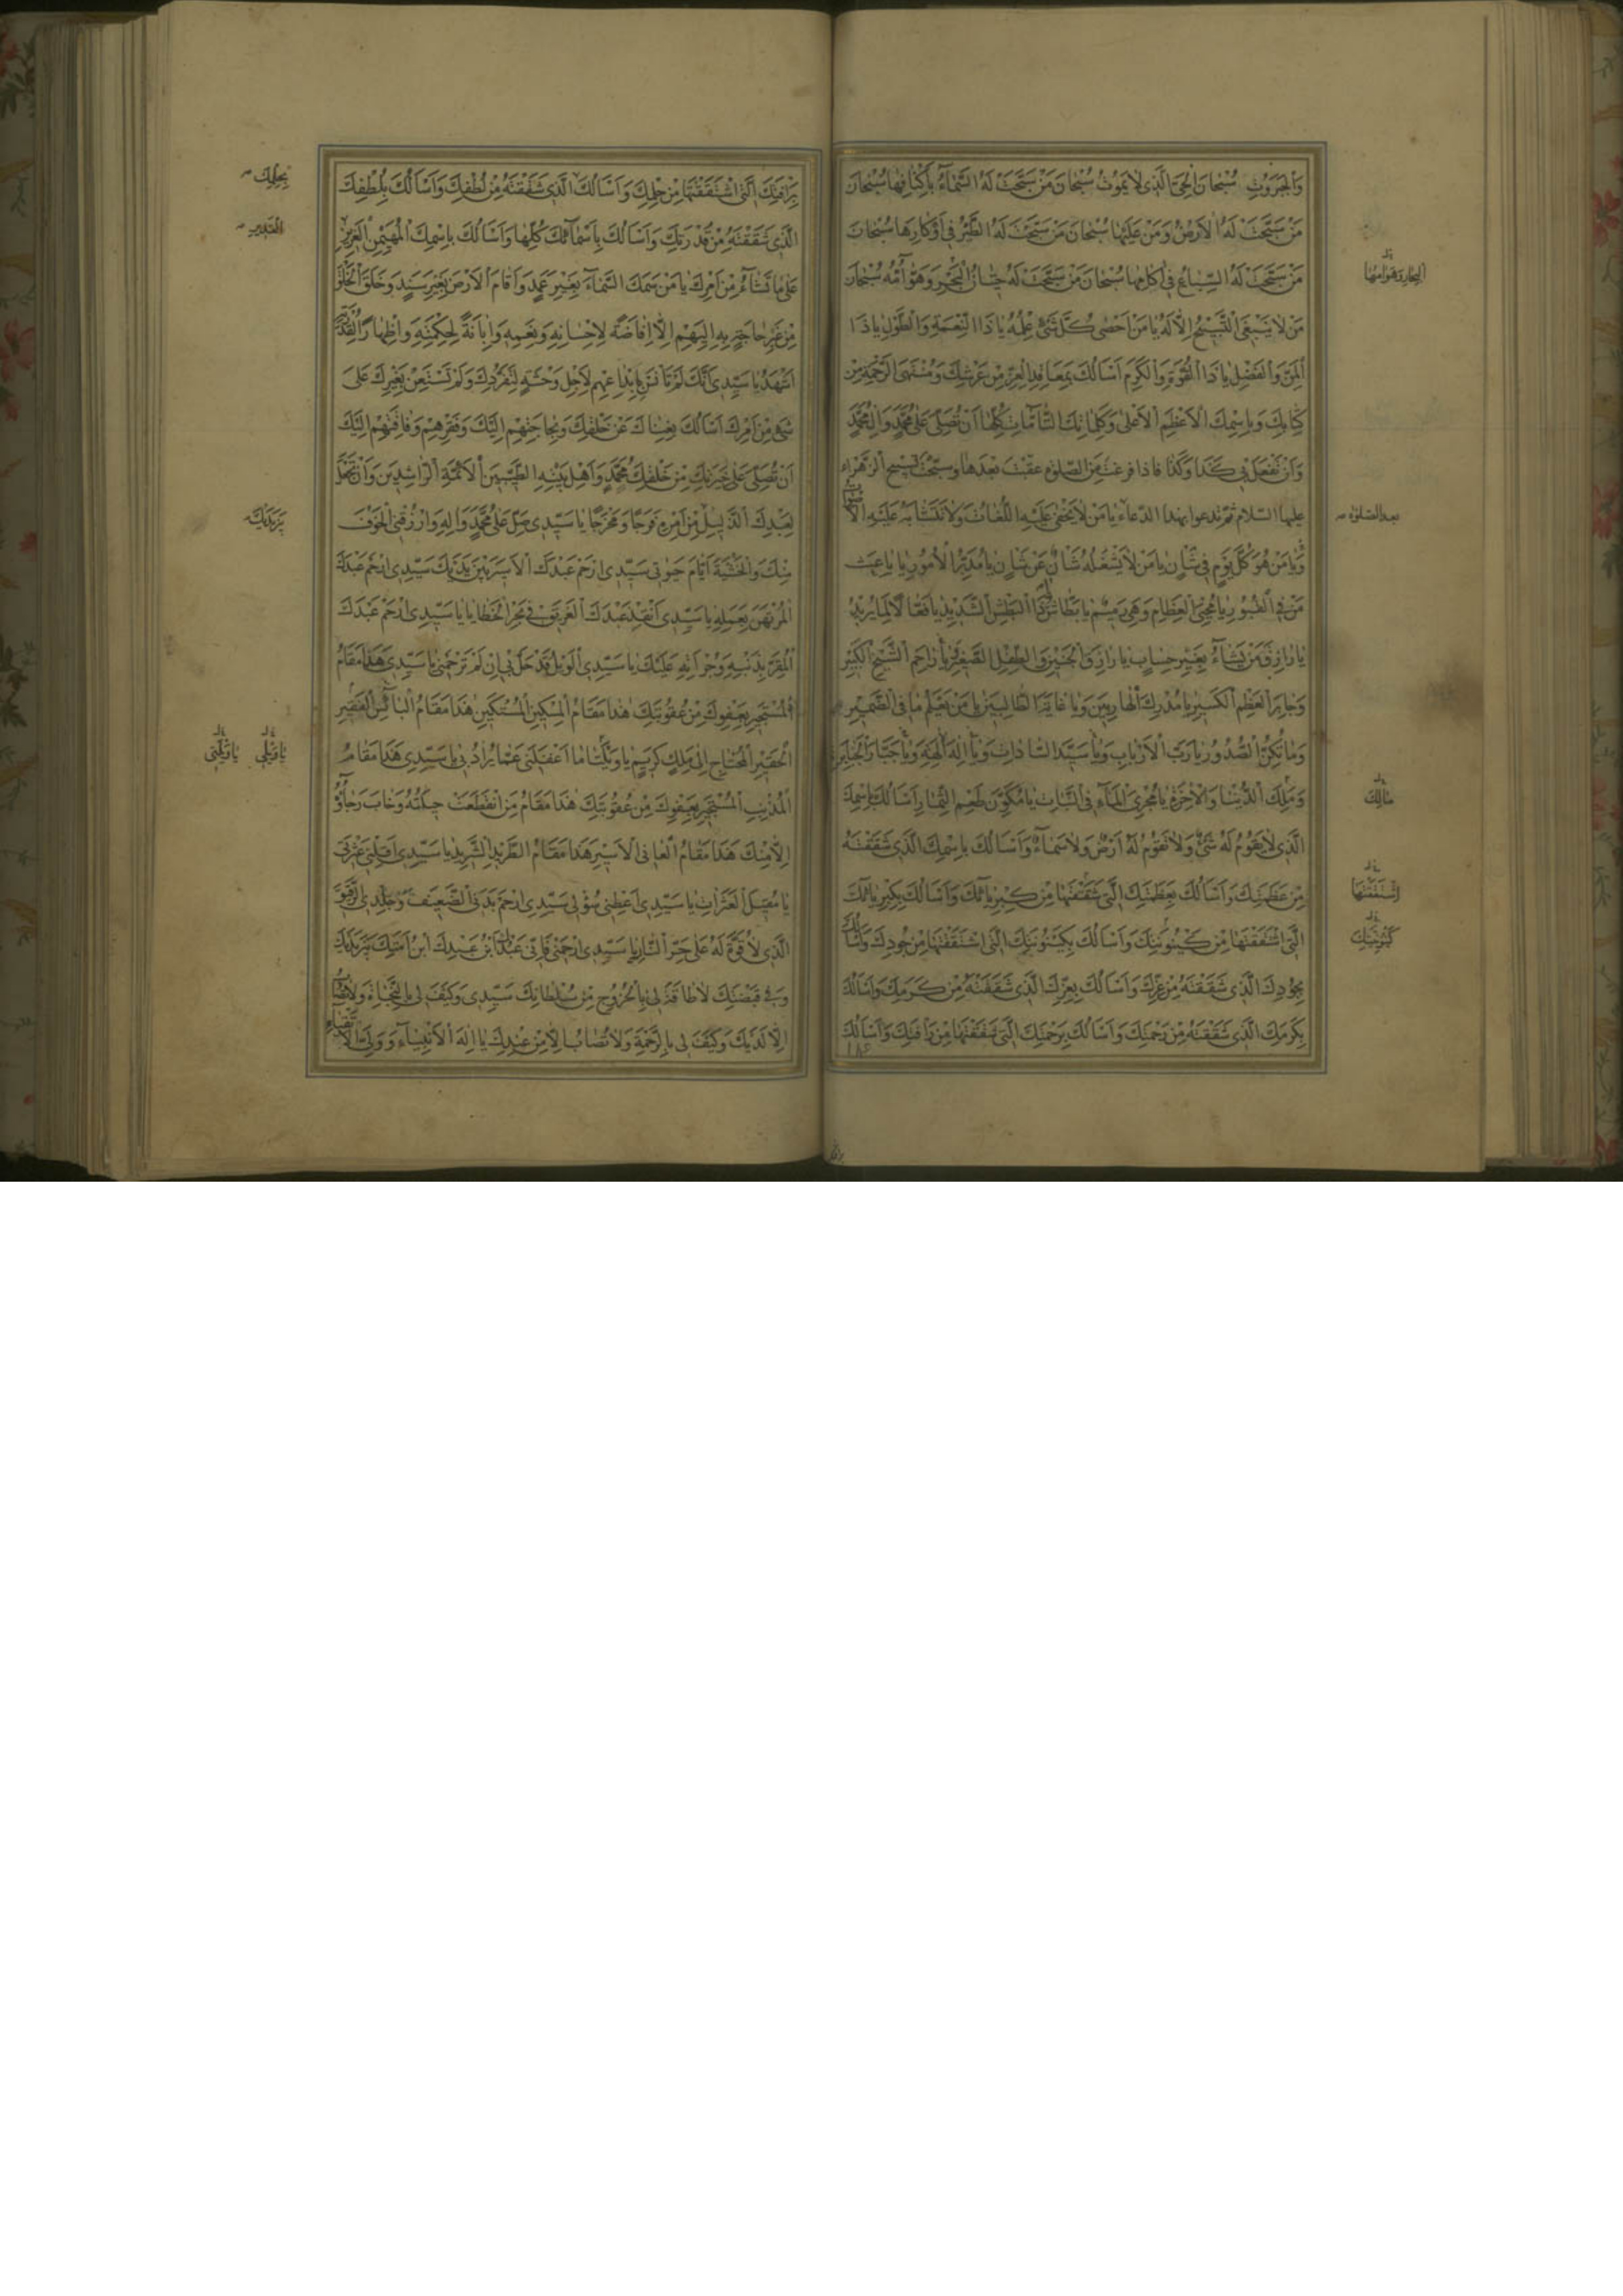 وَالْجَبَرُوتِ سُبْحَانَ الْحَيِّ الَّذِي لَا يَمُوتُ سُبْحَانَ مَنْ سَبَّحَتْ لَهُ السَّمَاءُ بِأَكْنَافِهَا سُبْحَانَ
مَنْ سَبَّحَتْ لَهُ الْاَرَضُونَ وَمَنْ عَلَيْهَا سُبْحَانَ مَنْ سَبَّحَتْ لَهُ الطَّيْرُ فِي اَوْكَارِهَا سُبْحَانَ
مَنْ سَبَّحَتْ لَهُ السِّبَاعُ فِي اٰكَامِهَا سُبْحَانَ مَنْ سَبَّحَتْ لَهُ حِيتَانُ الْبَحْرِ وَهَوَآمُّهُ سُبْحَانَ
الْبِحَارِ وَهَوَامُّهَا
مَنْ لَا يَنْبَغِي التَّسْبِيحُ اِلَّا لَهُ يَا مَنْ اَحْصٰى كُلَّ شَيْءٍ عِلْمُهُ يَا ذَا النِّعْمَةِ وَالطَّوْلِ يَا ذَا
الْمَنِّ وَالْفَضْلِ يَا ذَا الْقُوَّةِ وَالْكَرَمِ اَسْاَلُكَ بِمَعَاقِدِ الْعِزِّ مِنْ عَرْشِكَ وَمُنْتَهَى الرَّحْمَةِ مِنْ
كِتَابِكَ وَبِاسْمِكَ الْاَعْظَمِ الْاَعْلٰى وَكَلِمَاتِكَ التَّامَّاتِ كُلِّهَا اَنْ تُصَلِّيَ عَلٰى مُحَمَّدٍ وَاٰلِ مُحَمَّدٍ
وَاَنْ تَفْعَلَ بِي كَذَا وَكَذَا فاذا فرغت من الصّلوة عقّبت بعدها وسبّحت تسبيح الزهراء
عليها السلام ثم تدعوا بهذا الدعاء يَا مَنْ لَا يَخْفٰى عَلَيْهِ اللُّغَاتُ وَلَا تَتَشَابَهُ عَلَيْهِ الْاَصْوَاتُ
بعد الصلوة
وَيَا مَنْ هُوَ كُلَّ يَوْمٍ فِي شَأْنٍ يَا مَنْ لَا يَشْغَلُهُ شَأْنٌ عَنْ شَأْنٍ يَا مُدَبِّرَ الْاُمُورِ يَا بَاعِثَ
مَنْ فِي الْقُبُورِ يَا مُحْيِيَ الْعِظَامِ وَهِيَ رَمِيمٌ يَا بَطَّاشُ يَا ذَا الْبَطْشِ الشَّدِيدِ يَا فَعَّالًا لِمَا يُرِيدُ
يَا رَازِقَ مَنْ يَشَاءُ بِغَيْرِ حِسَابٍ يَا رَازِقَ الْجَنِينِ وَالطِّفْلِ الصَّغِيرِ يَا رَاحِمَ الشَّيْخِ الْكَبِيرِ
وَجَابِرَ الْعَظْمِ الْكَسِيرِ يَا مُدْرِكَ الْهَارِبِينَ وَيَا غَايَةَ الطَّالِبِينَ يَا مَنْ يَعْلَمُ مَا فِي الضَّمِيرِ
وَمَا تُكِنُّ الصُّدُورُ يَا رَبَّ الْاَرْبَابِ وَيَا سَيِّدَ السَّادَاتِ وَيَا اِلٰهَ الْاٰلِهَةِ وَيَا جَبَّارَ الْجَبَابِرَةِ
وَمَلِكَ الدُّنْيَا وَالْاٰخِرَةِ يَا مُجْرِيَ الْمَاءِ فِي النَّبَاتِ يَا مُكَوِّنَ طَعْمِ الثِّمَارِ اَسْاَلُكَ بِاسْمِكَ
مَالِكَ
الَّذِي لَا يَقُومُ لَهُ شَيْءٌ وَلَا تَقُومُ لَهُ اَرْضٌ وَلَا سَمَاءٌ وَاَسْاَلُكَ بِاسْمِكَ الَّذِي شَقَقْتَهُ
مِنْ عَظَمَتِكَ وَاَسْاَلُكَ بِعَظَمَتِكَ الَّتِي شَقَقْتَهَا مِنْ كِبْرِيَائِكَ وَاَسْاَلُكَ بِكِبْرِيَائِكَ
اشْتَقَقْتَهَا
الَّتِي اشْتَقَقْتَهَا مِنْ كَيْنُونَتِكَ وَاَسْاَلُكَ بِكَيْنُونَتِكَ الَّتِي اشْتَقَقْتَهَا مِنْ جُودِكَ وَاَسْاَلُكَ
بِجُودِكَ الَّذِي شَقَقْتَهُ مِنْ عِزِّكَ وَاَسْاَلُكَ بِعِزِّكَ الَّذِي شَقَقْتَهُ مِنْ كَرَمِكَ وَاَسْاَلُكَ
بِكَرَمِكَ الَّذِي شَقَقْتَهُ مِنْ رَحْمَتِكَ وَاَسْاَلُكَ بِرَحْمَتِكَ الَّتِي شَقَقْتَهَا مِنْ رَأْفَتِكَ وَاَسْاَلُكَ
بِرَأْفَتِكَ الَّتِي اشْتَقَقْتَهَا مِنْ حِلْمِكَ وَاَسْاَلُكَ الَّذِي شَقَقْتَهُ مِنْ لُطْفِكَ وَاَسْاَلُكَ بِلُطْفِكَ
بِحِلْمِكَ
الَّذِي شَقَقْتَهُ مِنْ قُدْرَتِكَ وَاَسْاَلُكَ بِاَسْمَائِكَ كُلِّهَا وَاَسْاَلُكَ بِاسْمِكَ الْمُهَيْمِنِ الْعَزِيزِ
الْقَدِيرِ
عَلٰى مَا تَشَاءُ مِنْ اَمْرِكَ يَا مَنْ سَمَكَ السَّمَاءَ بِغَيْرِ عَمَدٍ وَاَقَامَ الْاَرْضَ بِغَيْرِ سَنَدٍ وَخَلَقَ الْخَلْقَ
مِنْ غَيْرِ حَاجَةٍ بِهِ اِلَيْهِمْ اِلَّا اِفَاضَةً لِاِحْسَانِهِ وَنِعَمِهِ وَاِبَانَةً لِحِكْمَتِهِ وَاِظْهَارًا لِقُدْرَتِهِ
اَشْهَدُ يَا سَيِّدِي اَنَّكَ لَمْ تَأْنَسْ بِابْتِدَاعِهِمْ لِاَجْلِ وَحْشَةٍ لِتَفَرُّدِكَ وَلَمْ تَسْتَعِنْ بِغَيْرِكَ عَلٰى
شَيْءٍ مِنْ اَمْرِكَ اَسْاَلُكَ بِغِنَاكَ عَنْ خَلْقِكَ وَبِحَاجَتِهِمْ اِلَيْكَ وَفَقْرِهِمْ وَفَاقَتِهِمْ اِلَيْكَ
اَنْ تُصَلِّيَ عَلٰى خِيَرَتِكَ مِنْ خَلْقِكَ مُحَمَّدٍ وَاَهْلِ بَيْتِهِ الطَّيِّبِينَ الْاَئِمَّةِ الرَّاشِدِينَ وَاَنْ تَجْعَلَ
لِعَبْدِكَ الذَّلِيلِ مِنْ اَمْرِهِ فَرَجًا وَمَخْرَجًا يَا سَيِّدِي صَلِّ عَلٰى مُحَمَّدٍ وَاٰلِهِ وَارْزُقْنِي الْخَوْفَ
بَيْنَ يَدَيْكَ
مِنْكَ وَالْخَشْيَةَ اَيَّامَ حَيٰوتِي سَيِّدِي ارْحَمْ عَبْدَكَ الْاَسِيرَ بَيْنَ يَدَيْكَ سَيِّدِي ارْحَمْ عَبْدَكَ
الْمُرْتَهَنَ بِعَمَلِهِ يَا سَيِّدِي اَنْقِذْ عَبْدَكَ الْغَرِيقَ فِي بَحْرِ الْخَطَايَا يَا سَيِّدِي ارْحَمْ عَبْدَكَ
الْمُقِرَّ بِذَنْبِهِ وَجُرْأَتِهِ عَلَيْكَ يَا سَيِّدِي الْوَيْلُ قَدْ حَلَّ بِي اِنْ لَمْ تَرْحَمْنِي يَا سَيِّدِي هٰذَا مَقَامُ
الْمُسْتَجِيرِ بِعَفْوِكَ مِنْ عُقُوبَتِكَ هٰذَا مَقَامُ الْمِسْكِينِ الْمُسْتَكِينِ هٰذَا مَقَامُ الْبَائِسِ الْفَقِيرِ
الْحَقِيرِ الْمُحْتَاجِ اِلٰى مَلِكٍ كَرِيمٍ يَا وَيْلَتَا مَا اَغْفَلَنِي عَمَّا يُرَادُ بِي يَا سَيِّدِي هٰذَا مَقَامُ
يَا وَيْلِي يَا وَيْلَتِي
الْمُذْنِبِ الْمُسْتَجِيرِ بِعَفْوِكَ مِنْ عُقُوبَتِكَ هٰذَا مَقَامُ مَنِ انْقَطَعَتْ حِيلَتُهُ وَخَابَ رَجَاؤُهُ
اِلَّا مِنْكَ هٰذَا مَقَامُ الْعَانِي الْاَسِيرِ هٰذَا مَقَامُ الطَّرِيدِ الشَّرِيدِ يَا سَيِّدِي اَقِلْنِي عَثْرَتِي
يَا مُقِيلَ الْعَثَرَاتِ يَا سَيِّدِي اَعْطِنِي سُؤْلِي سَيِّدِي ارْحَمْ بَدَنِيَ الضَّعِيفَ وَجِلْدِيَ الرَّقِيقَ
الَّذِي لَا قُوَّةَ لَهُ عَلٰى حَرِّ النَّارِ يَا سَيِّدِي ارْحَمْنِي فَاِنِّي عَبْدُكَ ابْنُ عَبْدِكَ ابْنُ اَمَتِكَ بَيْنَ يَدَيْكَ
وَفِي قَبْضَتِكَ لَا طَاقَةَ لِي بِالْخُرُوجِ مِنْ سُلْطَانِكَ سَيِّدِي وَكَيْفَ لِي بِالنَّجَاةِ وَلَا تُصَابُ
اِلَّا لَدَيْكَ وَكَيْفَ لِي بِالرَّحْمَةِ وَلَا تُصَابُ اِلَّا مِنْ عِنْدِكَ يَا اِلٰهَ الْاَنْبِيَاءِ وَوَلِيَّ الْاَتْقِيَاءِ